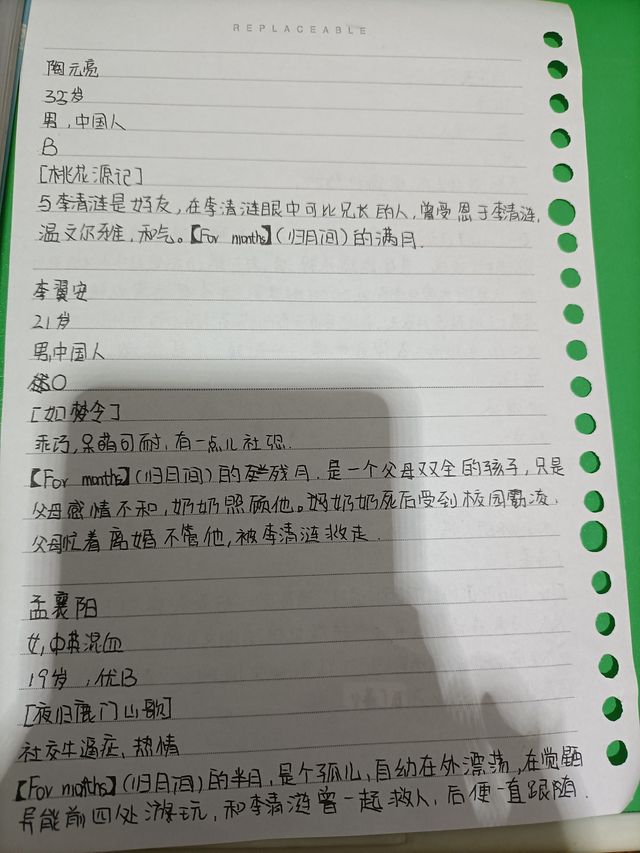 REPLACEABLE
陶元亮
35岁
男,中国人
B
[桃花源记]
与李清涟是好友,在李清涟眼中可比兄长的人,曾受恩于李清涟.
温文尔雅,和气。【For months】(归月间)的满月.
李翼安
21岁
男,中国人
O
[如梦令]
乖巧,呆萌可耐,有一点儿社恐.
【For months】(归月间)的残月.是一个父母双全的孩子,只是
父母感情不和,奶奶照顾他。奶奶死后受到校园霸凌,
父母忙着离婚不管他,被李清涟救走.
孟襄阳
女,中英混血
19岁,优B
[夜归鹿门山歌]
社交牛逼症,热情
【For months】(归月间)的半月,是个孤儿,自幼在外漂荡,在觉醒
异能前四处游玩,和李清涟曾一起救人,后便一直跟随.